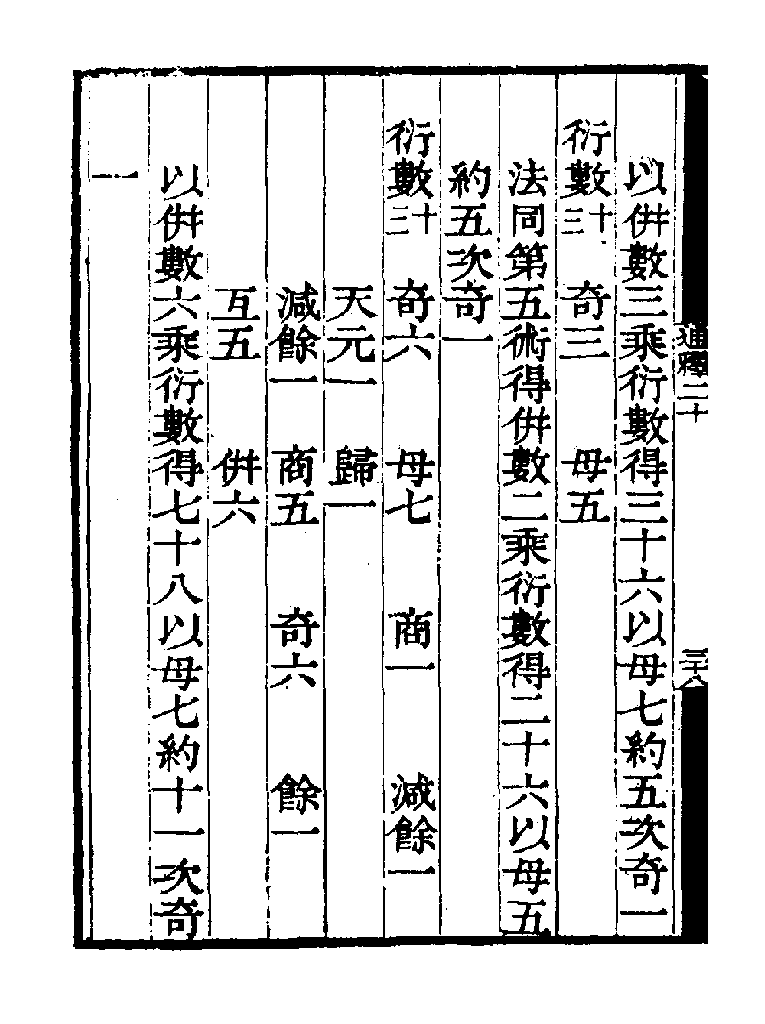 以倂數三乘衍數得三十六以母七約五次奇一
衍數十三　奇三　母五
法同第五術得倂數二乘衍數得二十六以母五
約五次奇一
衍數十三　奇六　母七　商一　減餘一
天元一　歸一
減餘一　商五　奇六　餘一
互五　倂六
以倂數六乘衍數得七十八以母七約十一次奇
一
通釋二十
三十八